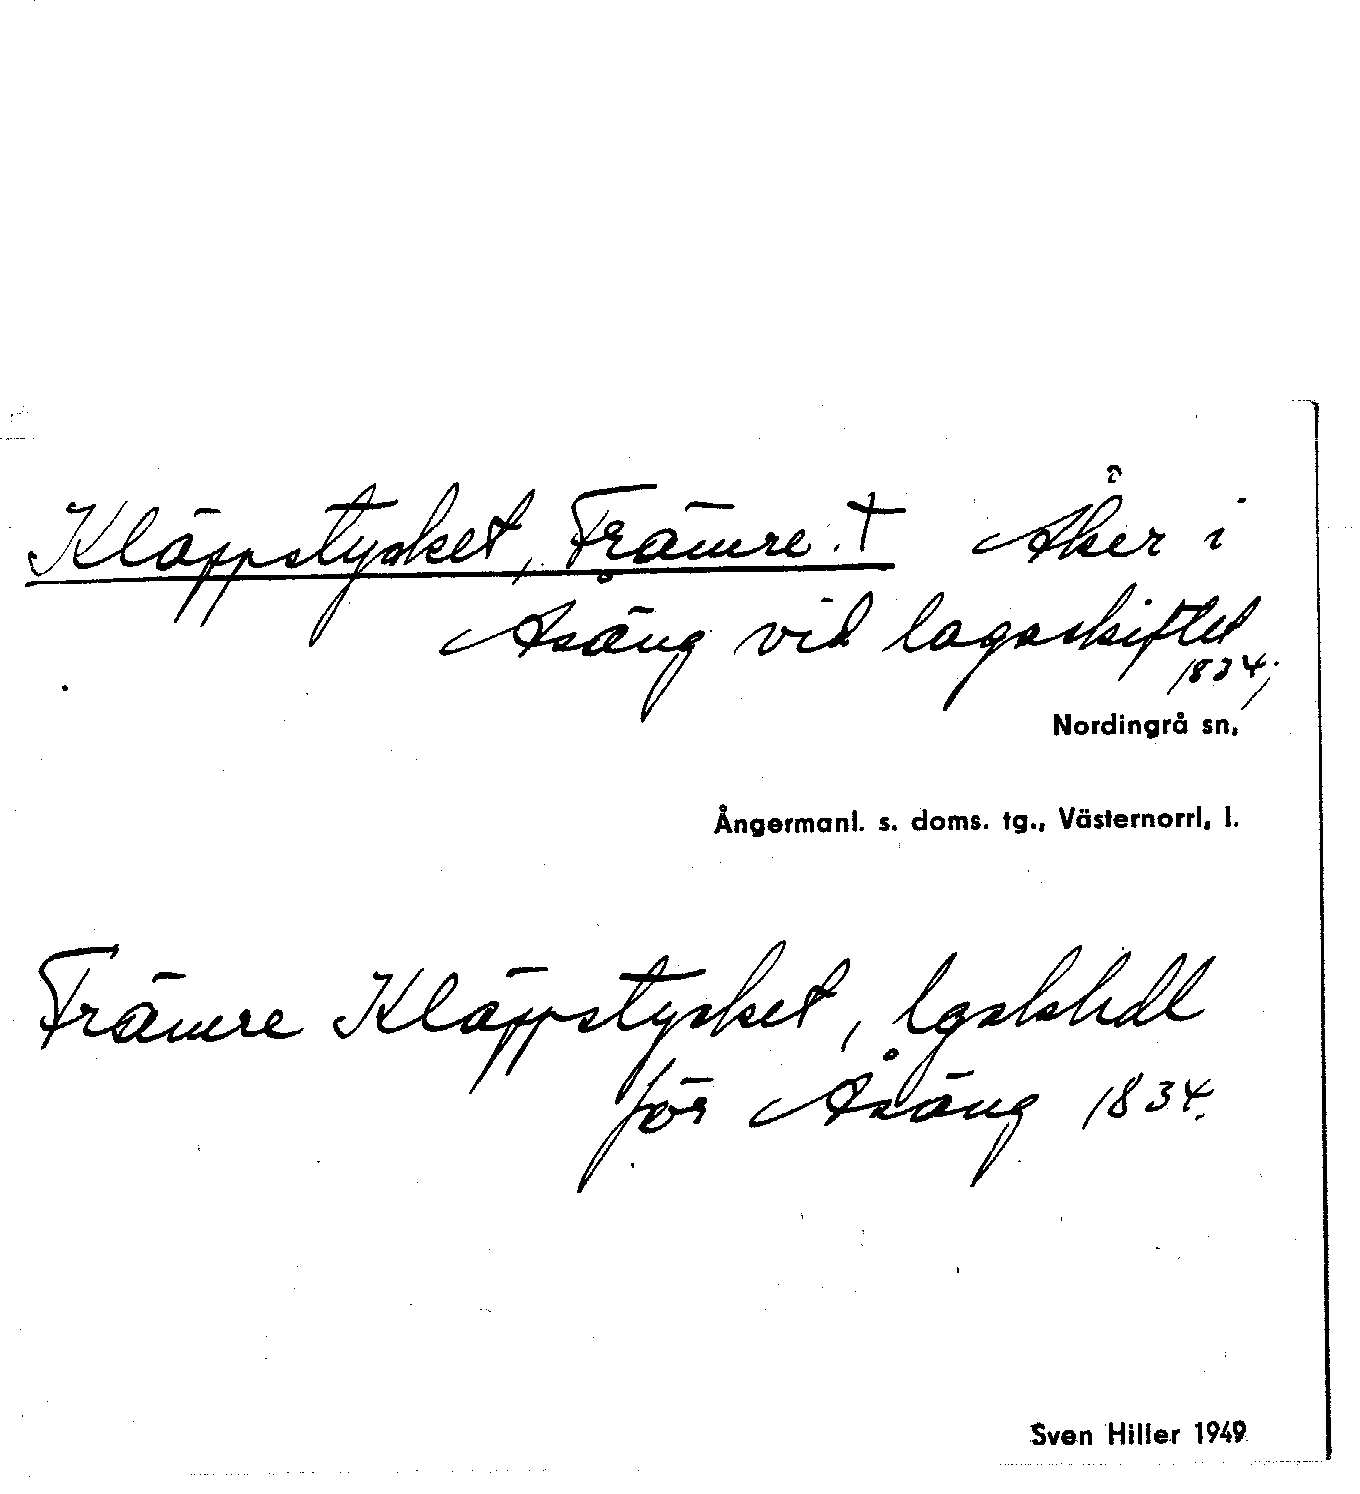 Kläppstycket, Främre. † Åker i
Åsäng vid lagaskiftet
1834;
Nordingrå sn,
Ångermanl. s. doms. tg., Västernorrl, l.
Främre Kläppstycket,
för Åsäng 1834.
Sven Hiller 1949